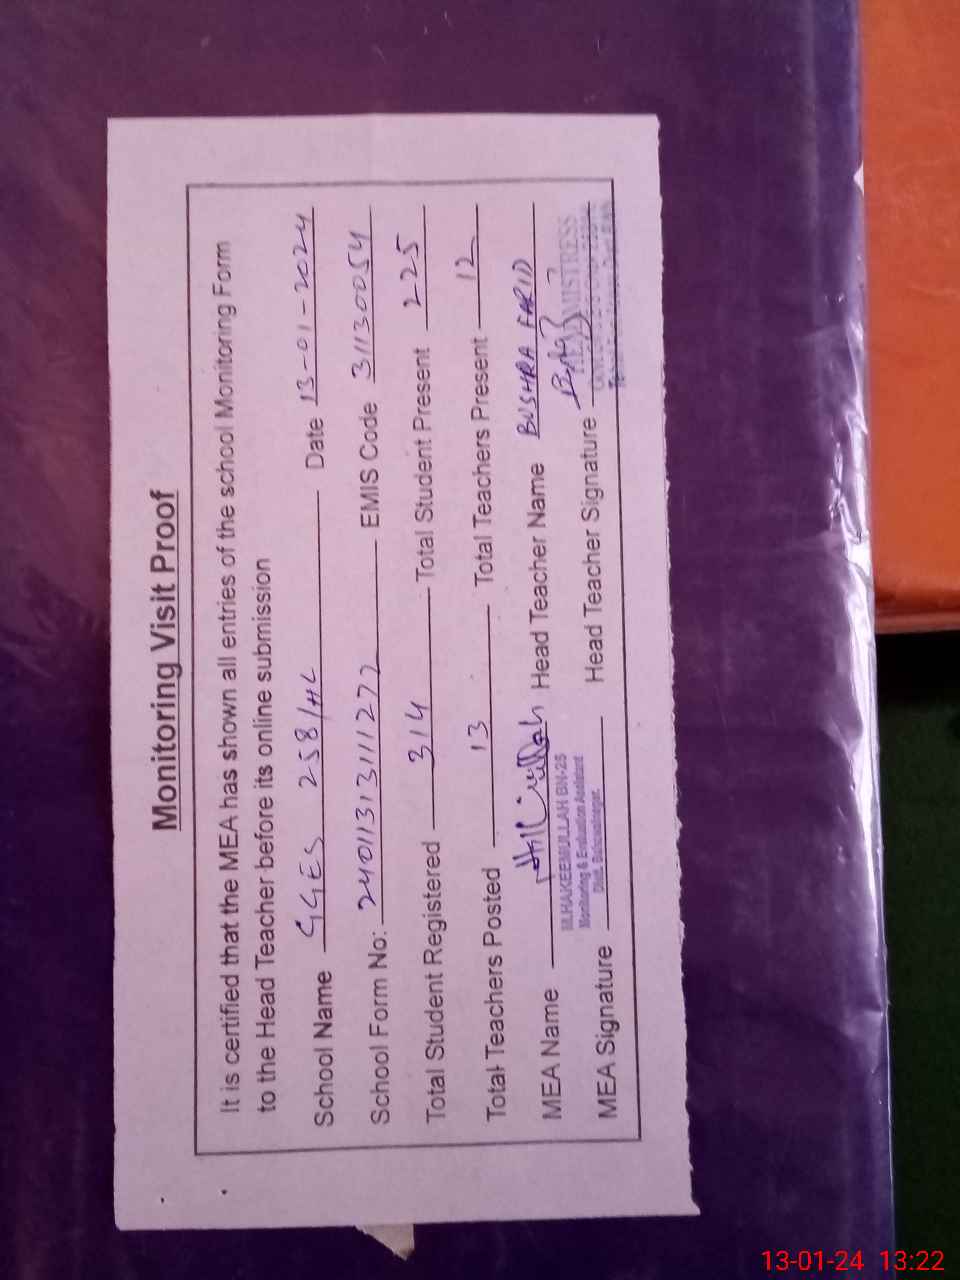 Monitoring Visit Proof
It is certified that the MEA has shown all entries of the school Monitoring Form
to the Head Teacher before its online submission
School Name GGES 258/HL Date 13-01-2024
School Form No: 24011313111272 EMIS Code 31130054
Total Student Registered 314 Total Student Present 225
Total Teachers Posted 13 Total Teachers Present 12
MEA Name Head Teacher Name BUSHRA FARID
M.HAKEEMULLAH BN-26
Monitoring & Evaluation Assistant
Distt. Bahawalnagar.
MEA Signature Head Teacher Signature
HEADMISTRESS
13-01-24 13:22